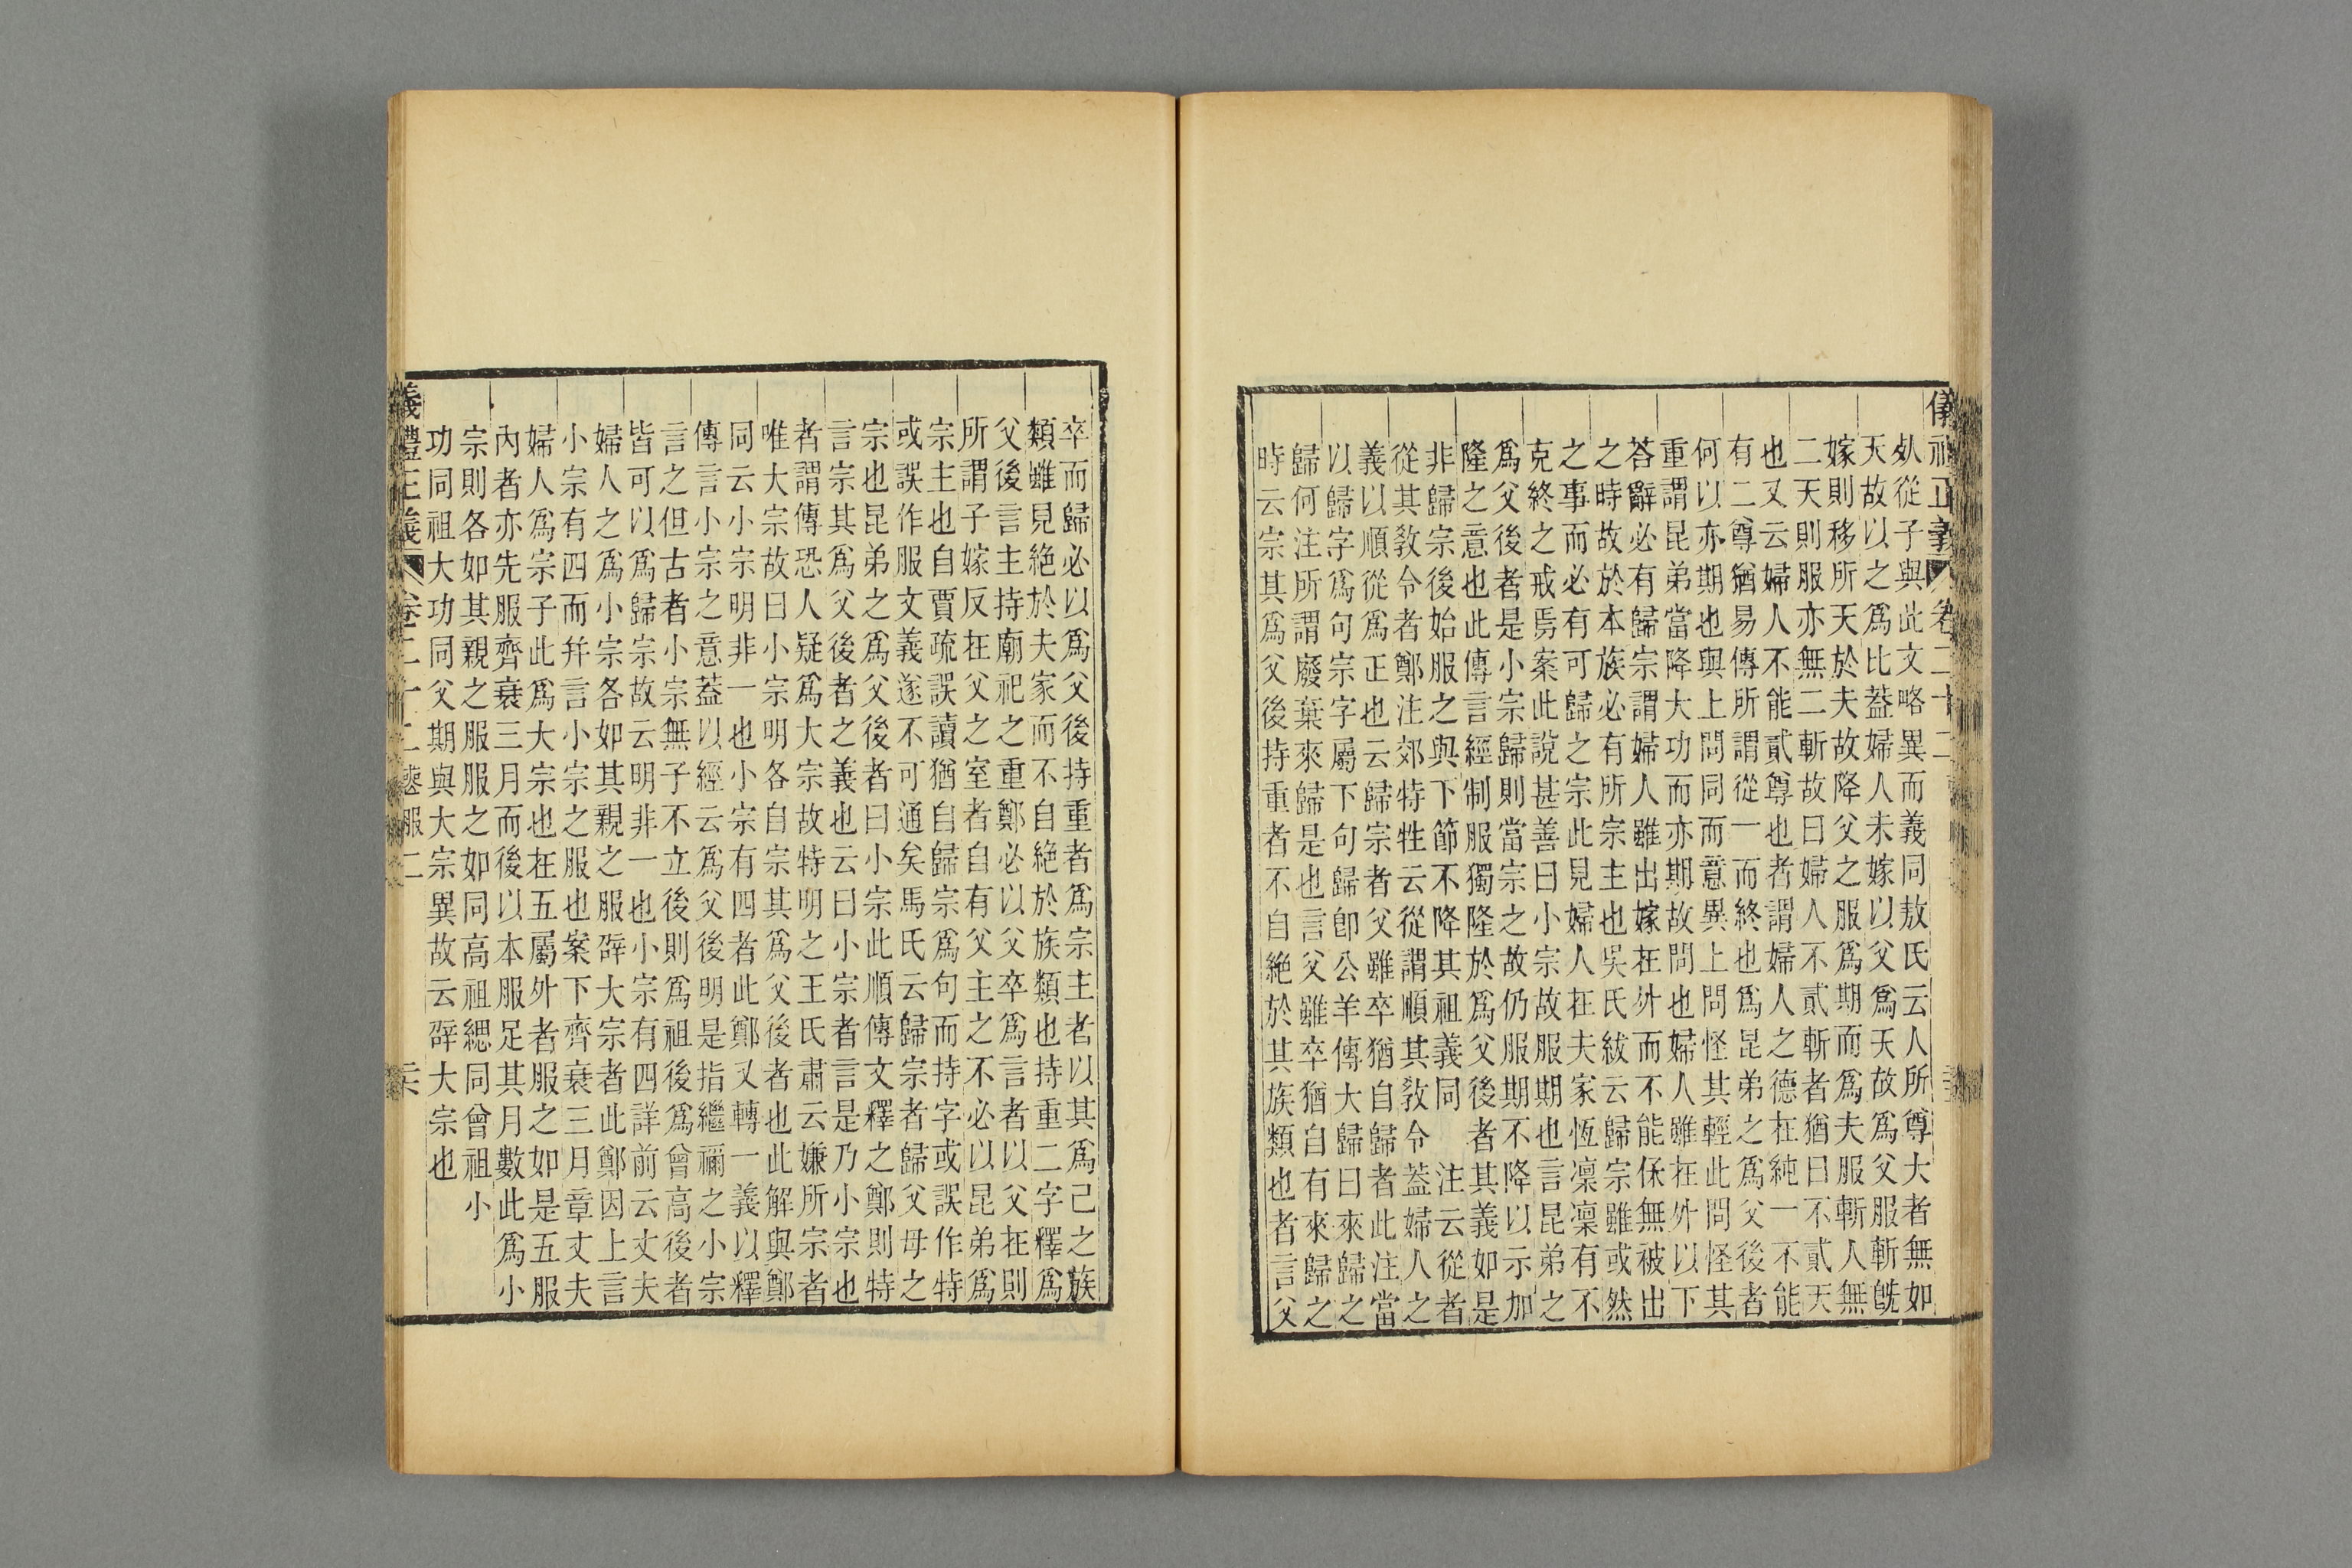 儀禮正義 卷二十二
从從子與此文略異而義同敖氏云人所尊大者無如
天故以之爲比蓋婦人未嫁以父爲天故爲父服斬旣
嫁則移所天於夫故降父之服爲期而爲夫服斬人無
二天則服亦無二斬故曰婦人不貳斬者猶曰不貳天
也又云婦人不能貳尊也者謂婦人之德在純一不能
有二尊猶易傳所謂從一而終也爲昆弟之爲父後者
何以亦期也與上問同而意異上問怪其輕此問怪其
重謂昆弟當降大功而亦期故問也婦人雖在外以下
荅辭必有歸宗謂婦人雖出嫁在外而不能保無被出
之時故於本族必有所宗主也吳氏紱云歸宗雖或然
之事而必有可歸之宗此見婦人在夫家恆凜凜有不
克終之戒焉案此說甚善曰小宗故服期也言昆弟之
爲父後者是小宗歸則當宗之故仍服期不降以示加
隆之意也此傳言經制服獨隆於爲父後者其義如是
非歸宗後始服之與下節不降其祖義同 注云從者
從其敎令者鄭注郊特牲云從謂順其敎令蓋婦人之
義以順從爲正也云歸宗者父雖卒猶自歸者此注當
以歸字爲句宗字屬下句歸卽公羊傳大歸曰來歸之
歸何注所謂廢棄來歸是也言父雖卒猶自有來歸之
時云宗其爲父後持重者不自絕於其族類也者言父
卒而歸必以爲父後持重者爲宗主者以其爲己之族
類雖見絕於夫家而不自絕於族類也持重二字釋爲
父後言主持廟祀之重鄭必以父卒爲言者以父在則
所謂子嫁反在父之室者自有父主之不必以昆弟爲
宗主也自賈疏誤讀猶自歸宗爲句而持字或誤作特
或誤作服文義遂不可通矣馬氏云歸宗者歸父母之
宗也昆弟之爲父後者曰小宗此順傳文釋之鄭則特
言宗其爲父後者之義也云曰小宗者言是乃小宗也
者謂傳恐人疑爲大宗故特明之王氏肅云嫌所宗者
唯大宗故曰小宗明各自宗其爲父後者也此解與鄭
同云小宗明非一也小宗有四者此鄭又轉一義以釋
傳言小宗之意蓋以經云爲父後明是指繼禰之小宗
言之但古者小宗無子不立後則爲祖後爲曾高後者
皆可以爲歸宗故云明非一也小宗有四詳前云丈夫
婦人之爲小宗各如其親之服辟大宗者此鄭因上言
小宗有四而幷言小宗之服也案下齊衰三月章丈夫
婦人爲宗子此爲大宗也在五屬外者服之如是五服
內者亦先服齊衰三月而後以本服足其月數此爲小
宗則各如其親之服服之如同高祖緦同曾祖小
功同祖大功同父期與大宗異故云辟大宗也
禮正義 卷二十二 喪服二